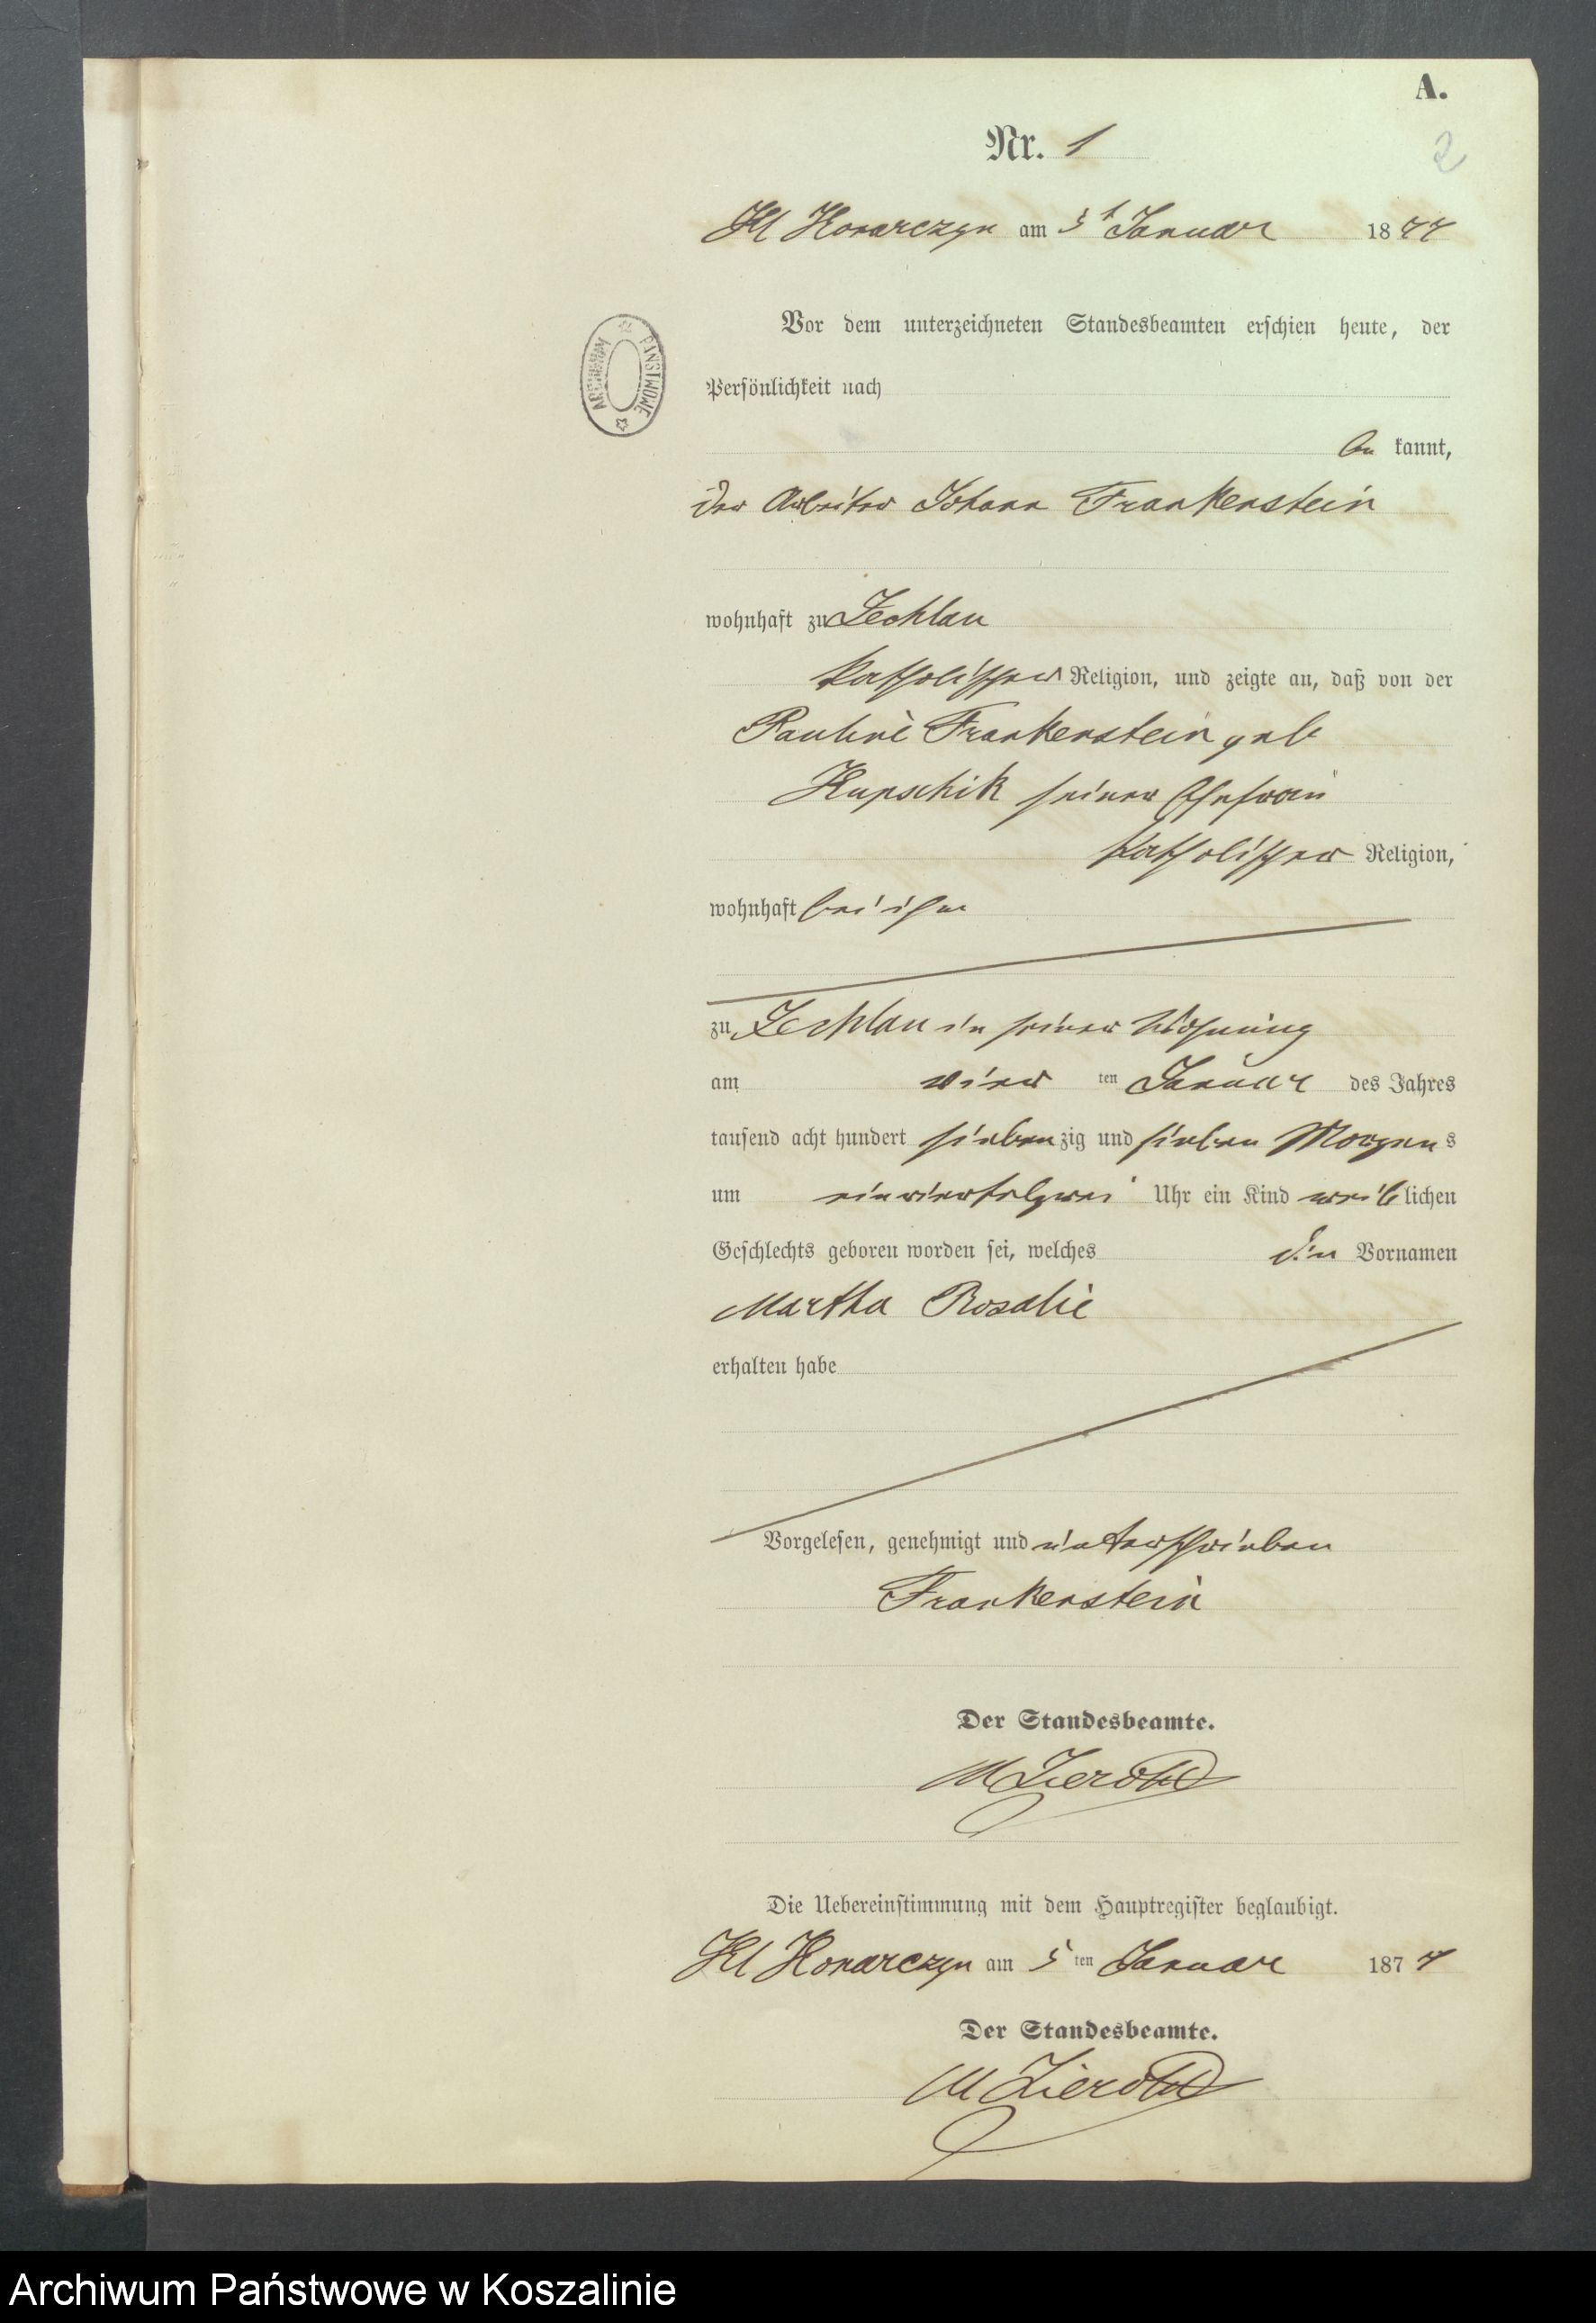 A.
Nr. 1
2
Kl Konarczyn am 5t Januar 1877
Vor dem unterzeichneten Standesbeamten erschien heute, der
Persönlichkeit nach
ARCHIWUM PAŃSTWOWE
be kannt,
der Arbeiter Johann Frankenstein
wohnhaft zu Zechlau
katholischer Religion, und zeigte an, daß von der
Pauline Frankenstein geb
Kupschik seiner Ehefrau
katholischer Religion,
wohnhaft bei ihm
zu Zechlau in seiner Wohnung
am vier ten Januar des Jahres
tausend acht hundert sieben zig und sieben Morgen s
um einviertelzwei Uhr ein Kind weib lichen
Geschlechts geboren worden sei, welches die Vornamen
Martha Rosalie
erhalten habe
Vorgelesen, genehmigt und unterschrieben
Frankenstein
Der Standesbeamte.
Die Uebereinstimmung mit dem Hauptregister beglaubigt.
Kl Konarczyn am 5 ten Januar 187 7
Der Standesbeamte.
Archiwum Państwowe w Koszalinie